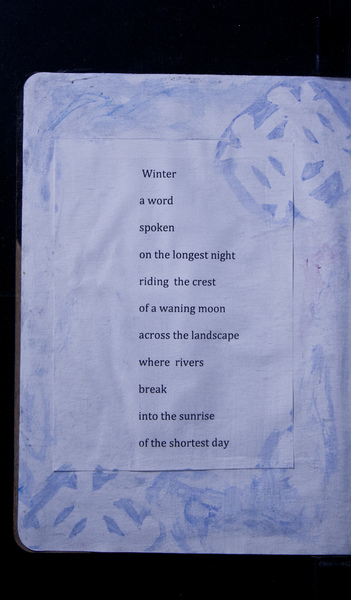 Winter
a word
spoken
on the longest night
riding  the crest
of a waning moon
across the landscape
where  rivers
break
into the sunrise
of the shortest day